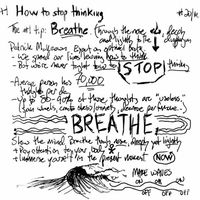 #1 How to stop thinking
The #1 tip: Breathe. Through the nose, deeply
and lightly to the
Patrick McKeown. Expert on optimal breath
- We spend our lives learning how to think
- But we're never taught how to STOP thinking
- Average person has 70,000
thoughts per day
- Up to 80-90% of those thoughts are "useless."
BREATHE.
Slow the mind. Breathe through nose, deeply yet lightly
+ Pay attention to your body
+ Immerse yourself in the present moment NOW
MAKE WAVES
ON ON ON
OFF OFF OFF